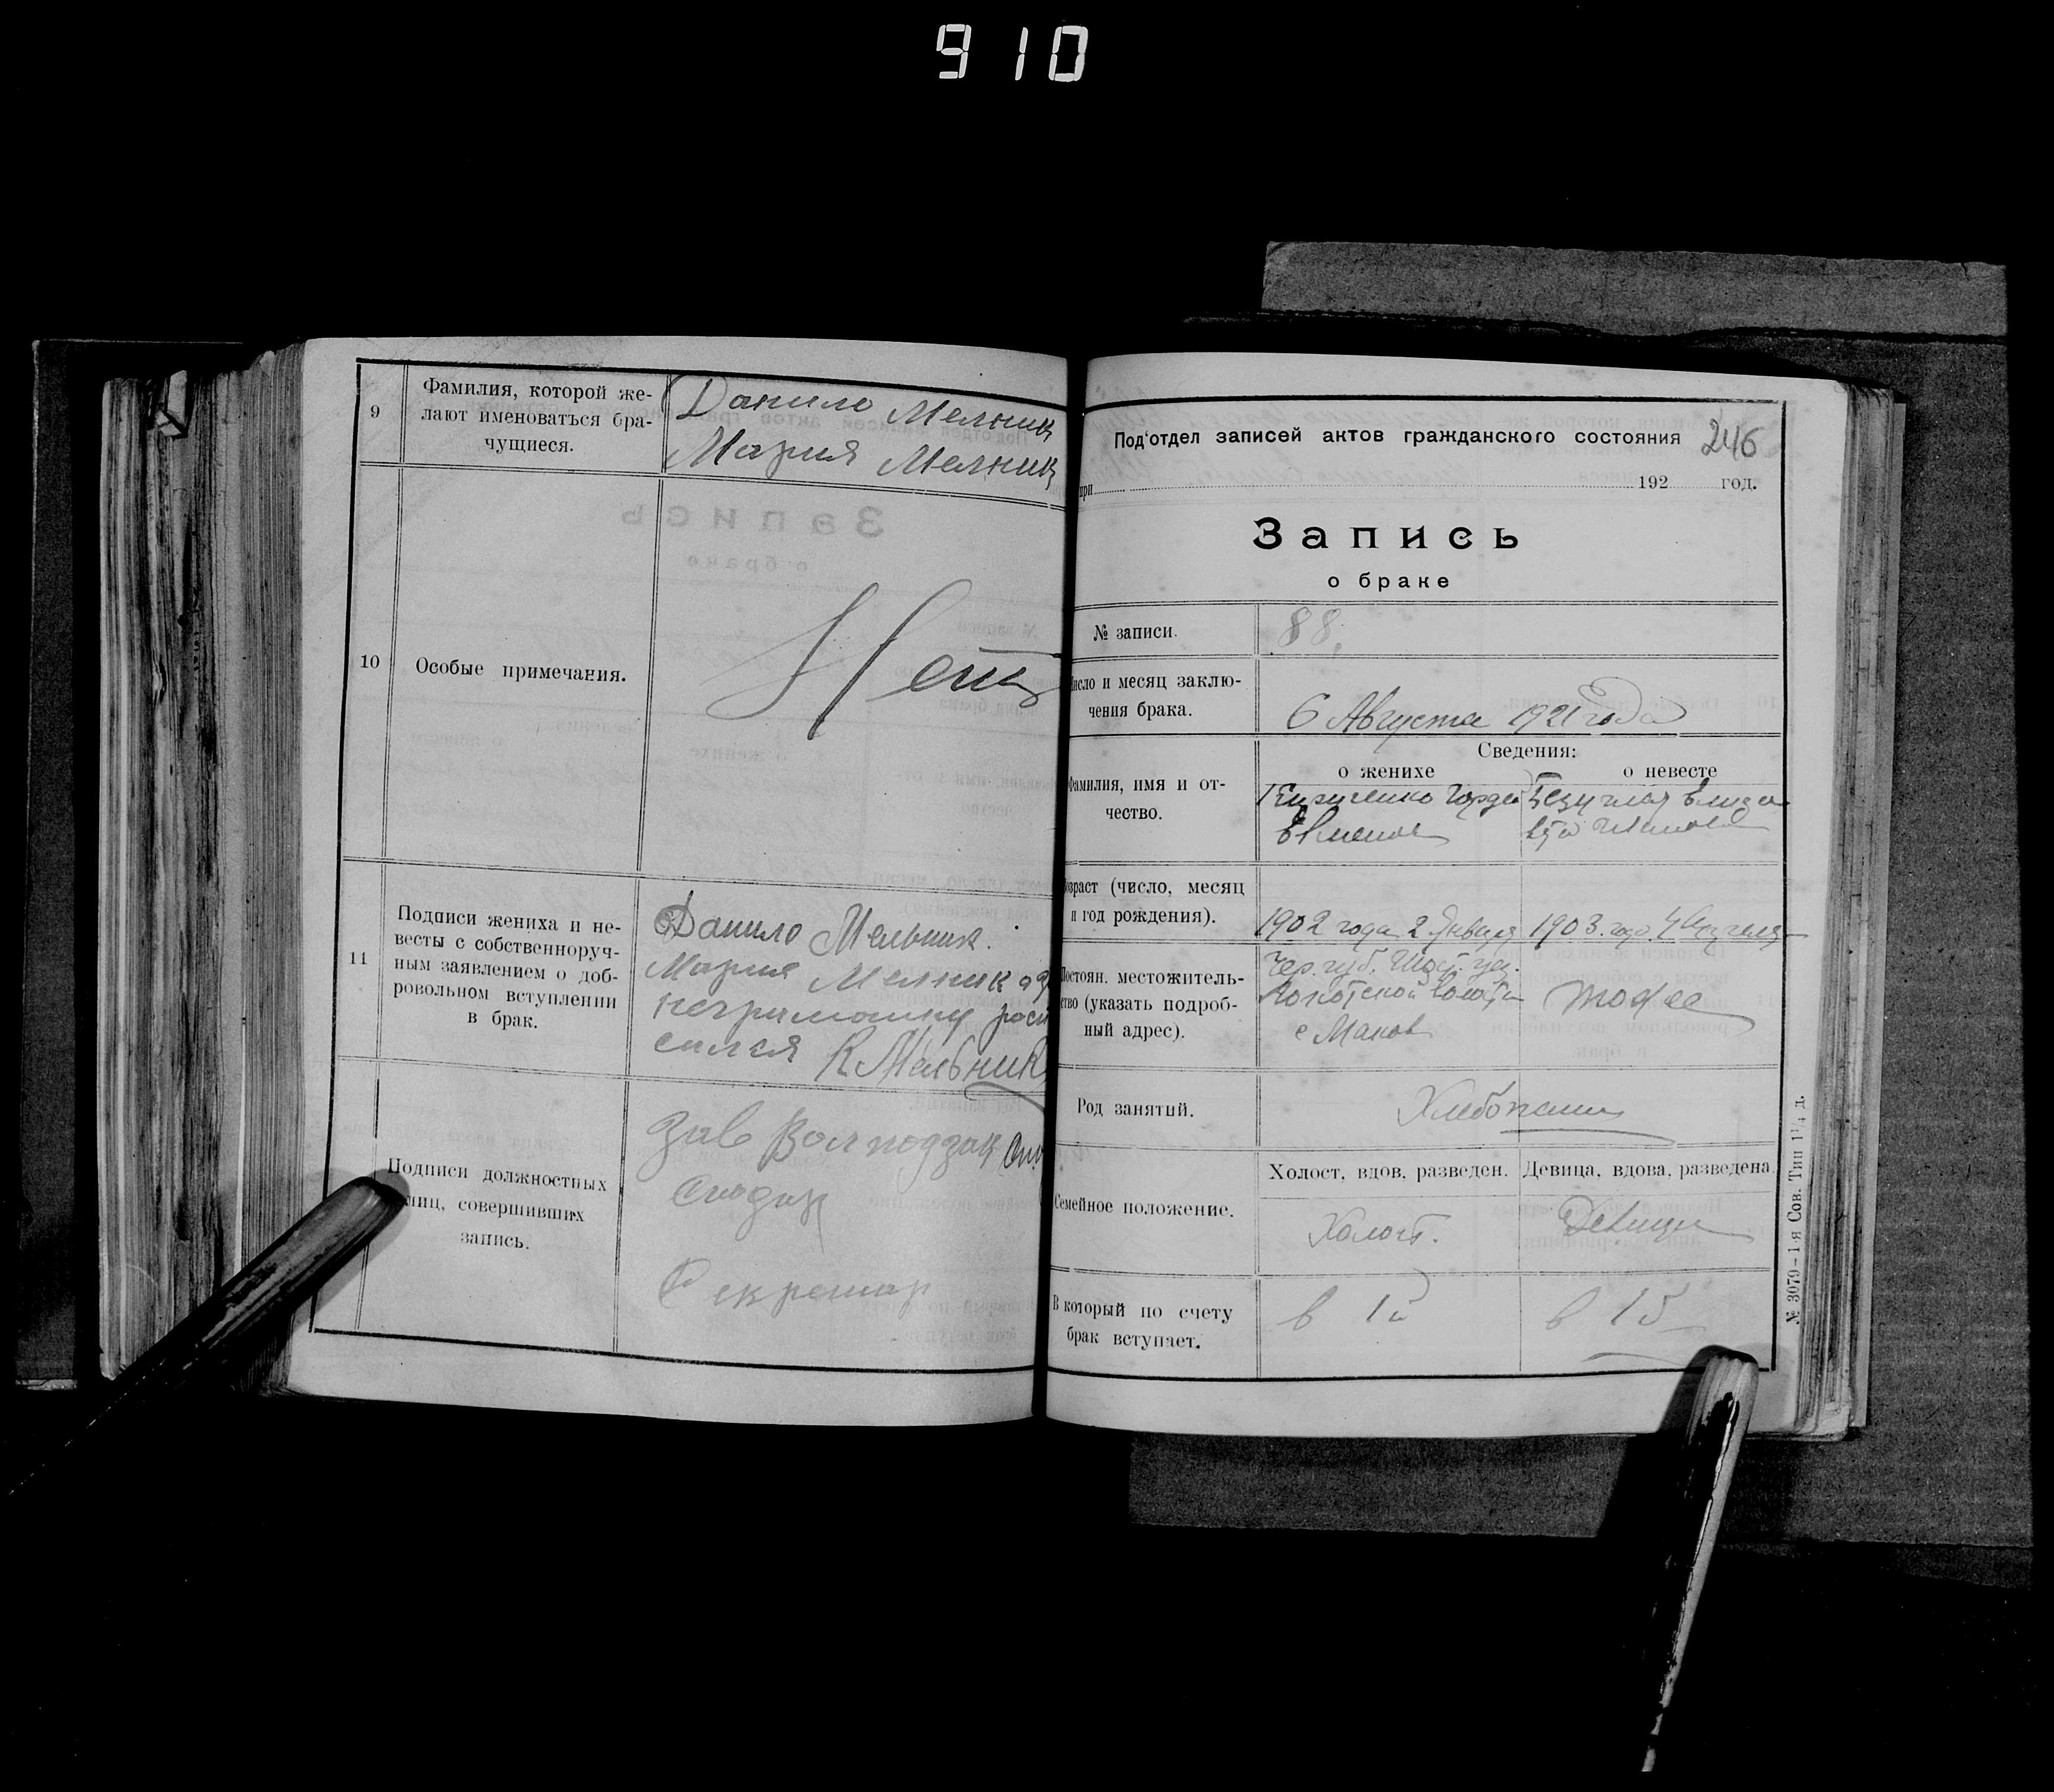 910
9
Фамилия, которой же-
лают именоваться бра-
чущиеся.
Данило Мельник
Мария Мелник
10
Особые примечания.
Нет
11
Подписи жениха и не-
весты с собственноруч-
ным заявлением о доб-
ровольном вступлении
в брак.
Данило Мельник.
Мария Мелник
неграмотну роспи
сился К Мельник
Подписи должностных
лиц, совершивших
запись.
Зав Волподзаг
Секретар
Под'отдел записей актов гражданского состояния
246
при 192 год.
Запись
о браке
№ записи.
88.
Число и месяц заклю-
чения брака.
6 Августа 1921 года
Сведения:
о женихе
о невесте
Фамилия, имя и от-
чество.
Кириенко Гордей
Евменов
Безуглая Елиза
вета Иванова
Возраст (число, месяц
и год рождения).
1902 года 2 Января
1903 году 4
Постоян. местожитель-
ство (указать подроб-
ный адрес).
Чер. губ. Шост. уез.
волости
с Маков
тоже
Род занятий.
Хлебопашц
Семейное положение.
Холост, вдов, разведен.
Девица, вдова, разведена
Холост.
Девица
В который по счету
брак вступает.
в 1й
в 1й
№ 3079–1-я Сов. Тип 1¼ д.